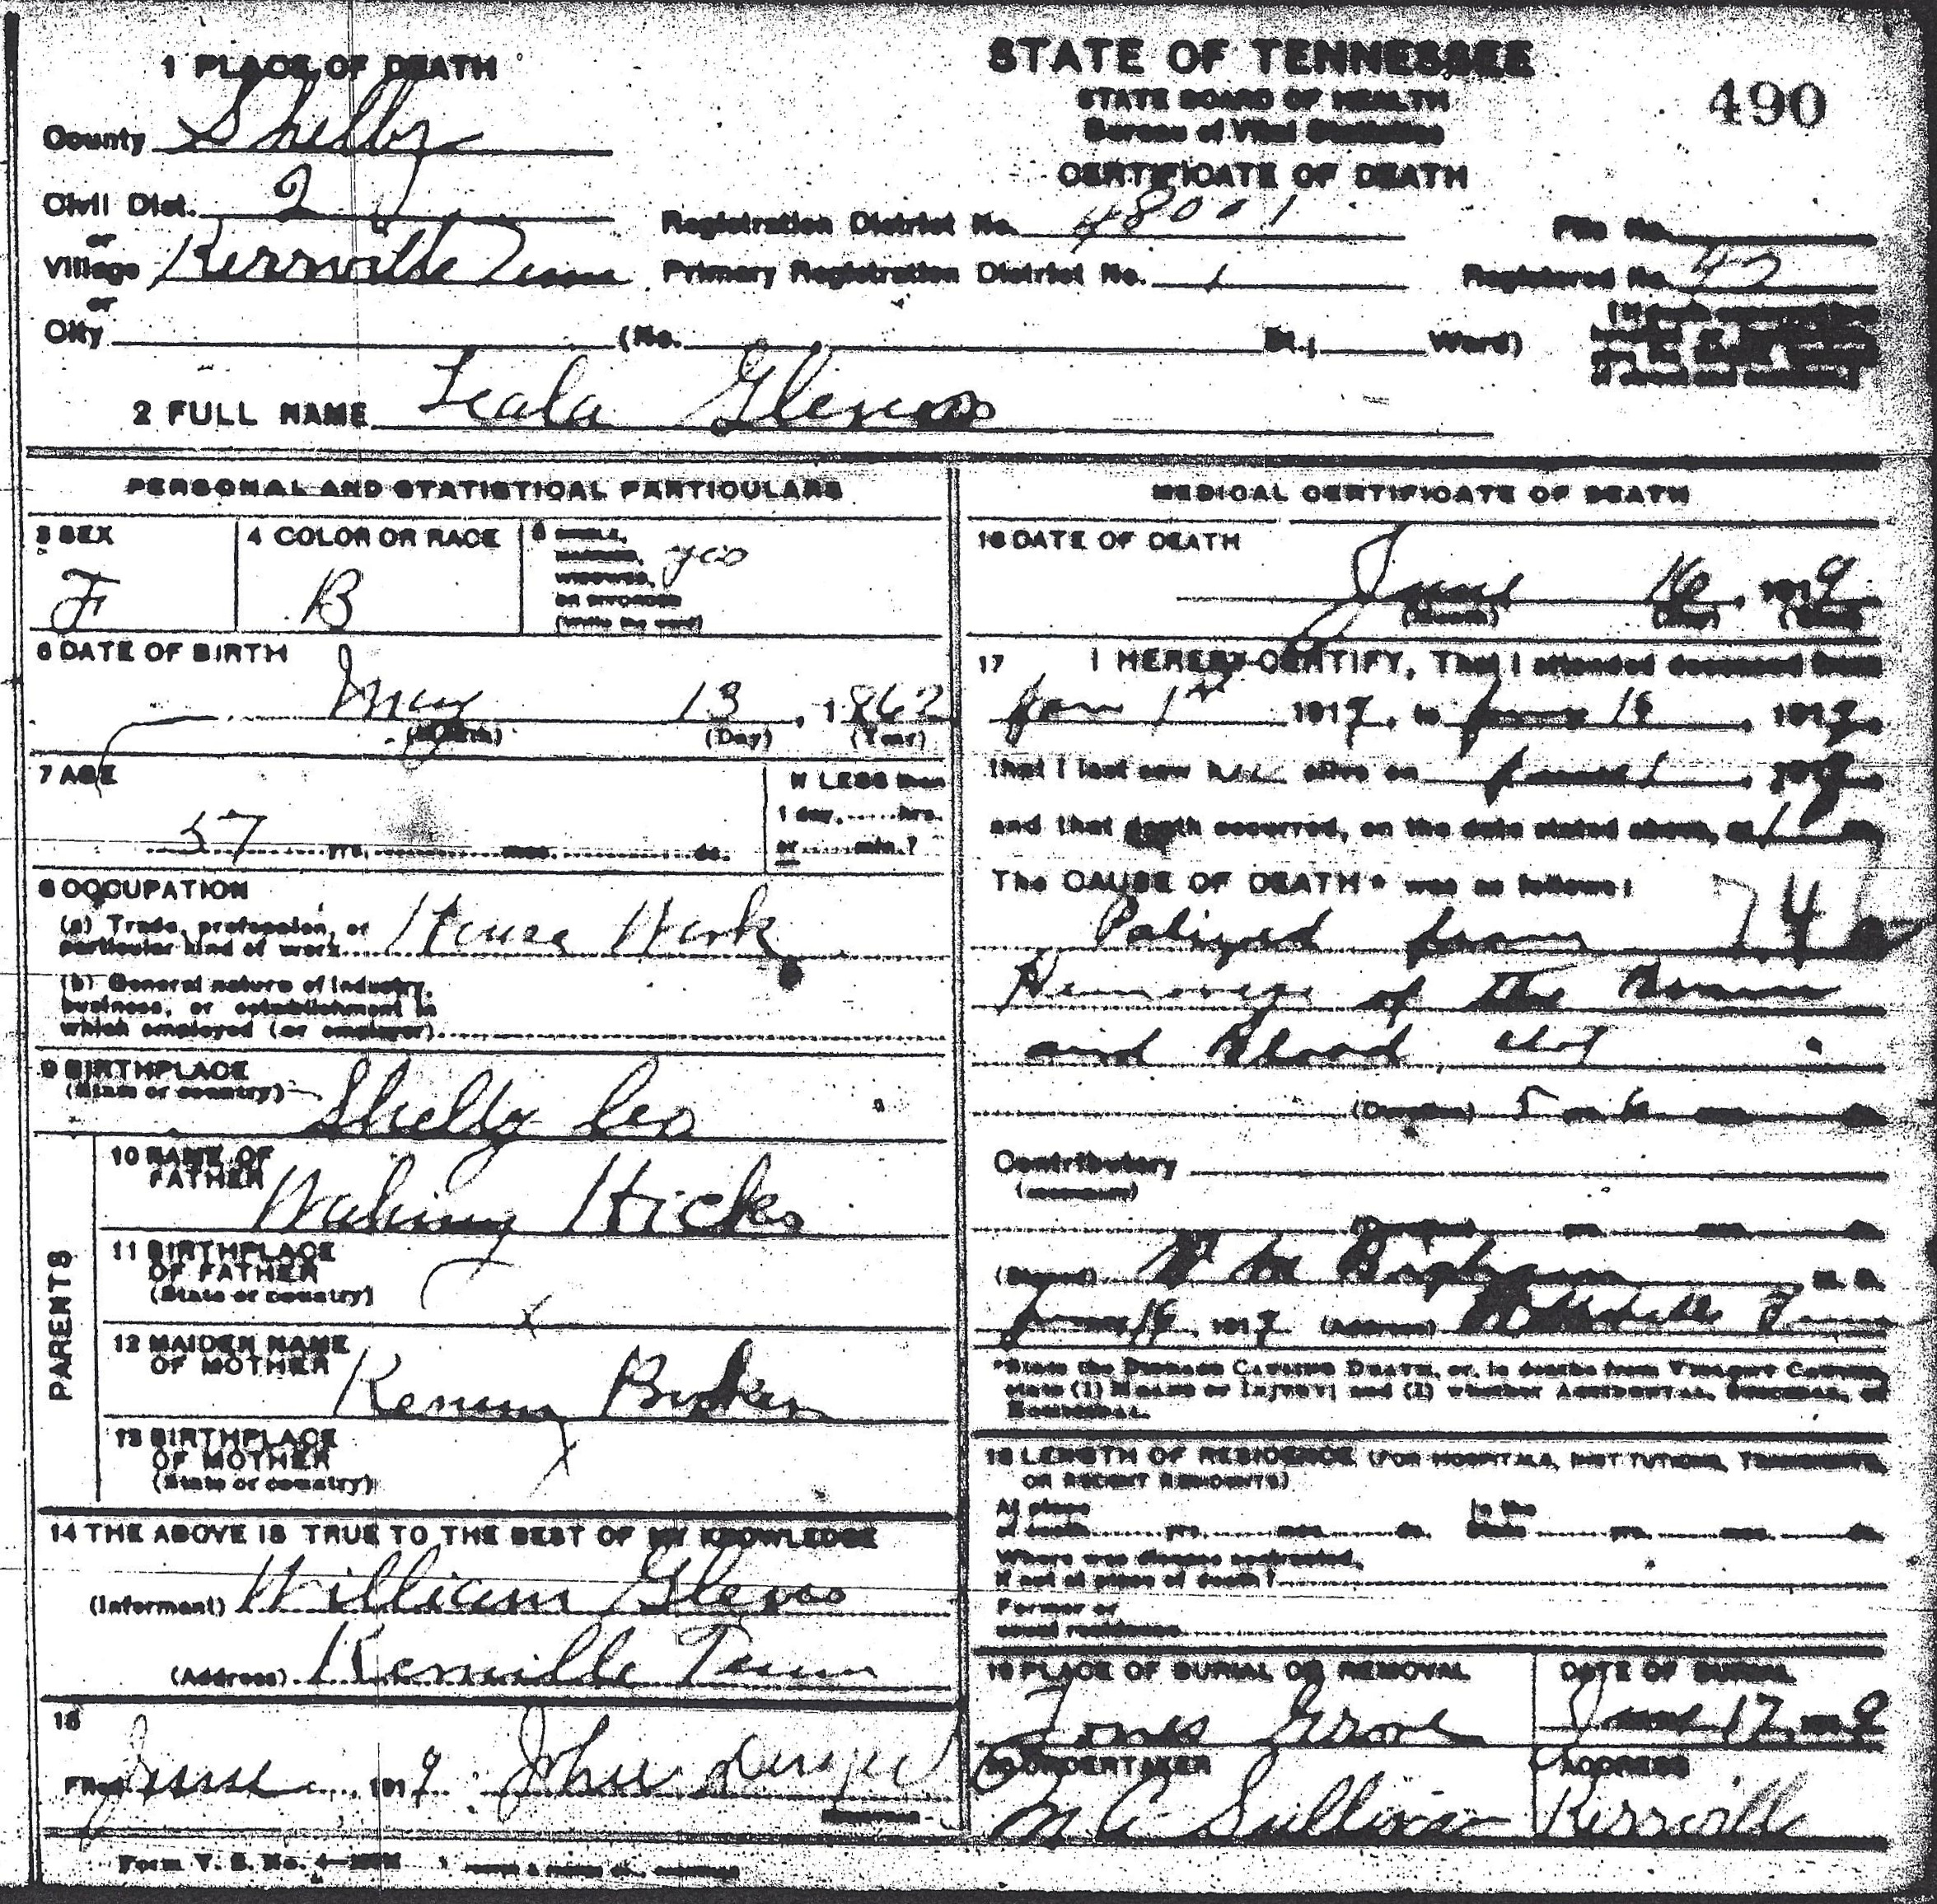 1 PLACE OF DEATH
STATE OF TENNESSEE
STATE BOARD OF HEALTH
Bureau of Vital Statistics
CERTIFICATE OF DEATH
490
County Shelby
Civil Dist. 2
or
Village Kerrville Tenn
or
City (No. St.; Ward)
Registration District No. 48001
File No.
Primary Registration District No. 1
Registered No.
2 FULL NAME Leala
PERSONAL AND STATISTICAL PARTICULARS
3 SEX
F
4 COLOR OR RACE
B
5 SINGLE,
MARRIED,
WIDOWED,
OR DIVORCED
(Write the word)
yes
6 DATE OF BIRTH
May 13, 1862
(Month) (Day) (Year)
7 AGE
57 yrs. mos. ds.
If LESS than
1 day, hrs.
or min.?
8 OCCUPATION
(a) Trade, profession, or
particular kind of work House Work
(b) General nature of industry,
business, or establishment in
which employed (or employer)
9 BIRTHPLACE
(State or country) Shelby Co
PARENTS
10 NAME OF
FATHER Hicks
11 BIRTHPLACE
OF FATHER
(State or country) x
12 MAIDEN NAME
OF MOTHER
13 BIRTHPLACE
OF MOTHER
(State or country) x
14 THE ABOVE IS TRUE TO THE BEST OF MY KNOWLEDGE
(Informant) William
(Address) Kerrville Tenn
15
Filed June 1919 John
MEDICAL CERTIFICATE OF DEATH
16 DATE OF DEATH
June 16, 1919
(Month) (Day) (Year)
17 I HEREBY CERTIFY, That I attended deceased from
Jan 1st 1919, to June 16, 1919,
that I last saw her alive on June 1, 1919,
and that death occurred, on the date stated above, at
The CAUSE OF DEATH* was as follows:
Palized from
of the
and Blood clot
(Duration) 5 6
Contributory
(Secondary)
(Signed) W M M. D.
June 16, 1919 (Address) Tenn
*State the DISEASE CAUSING DEATH, or, in deaths from VIOLENT CAUSES,
state (1) MEANS OF INJURY; and (2) whether ACCIDENTAL, SUICIDAL, or
HOMICIDAL.
18 LENGTH OF RESIDENCE (FOR HOSPITALS, INSTITUTIONS, TRANSIENTS,
OR RECENT RESIDENTS)
At place
of death yrs. mos. ds.
In the
State yrs. mos. ds.
Where was disease contracted,
if not at place of death?
Former or
usual residence
19 PLACE OF BURIAL OR REMOVAL
Jones Grove
DATE OF BURIAL
June 17, 1919
20 UNDERTAKER
M C Sullivan
ADDRESS
Kerrville